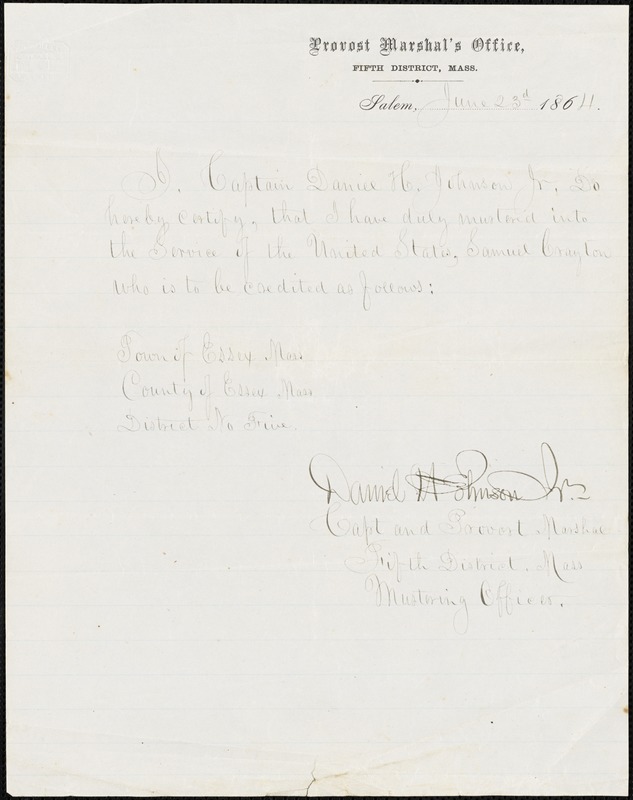 Provost Marshal's Office,
FIFTH DISTRICT, MASS.
Salem, June 23d 1864.
I, Captain Daniel H. Johnson Jr. Do
hereby certify, that I have duly mustered into
the Service of the United States, Samuel Crayton
who is to be credited as follows:
Town of Essex Mass
County of Essex Mass
District No Five.
Daniel H Johnson Jr.
Capt and Provost Marshal
Fifth District. Mass
Mustering Officer.